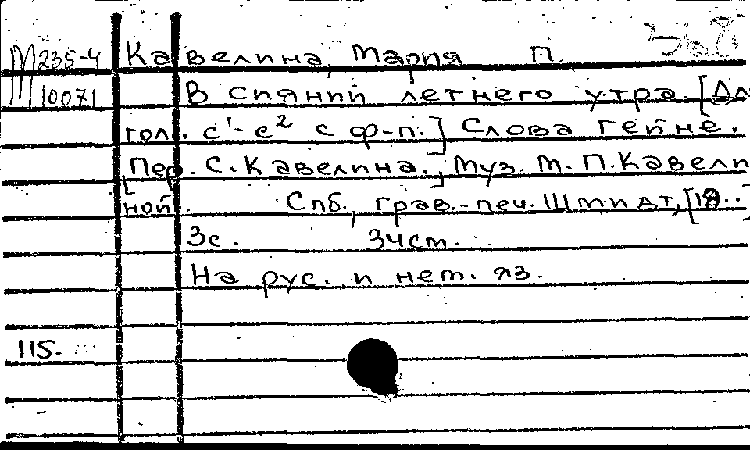 М 235-4
10071
Кавелина, Мария П.
В сиянии летнего утра. [Дл
гол. c¹-e² с ф-п.] Слова Гейне.
[Пер. С. Кавелина.], Муз. М. П. Кавели
ной. Спб., грав.-печ. Шмидт, [19..
3с. 34см.
На рус. и нем. яз.
115-